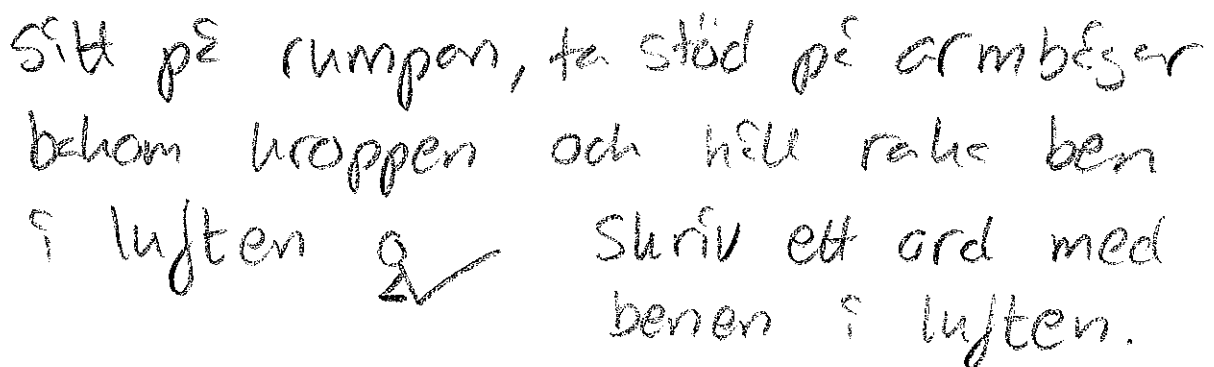 Sitt på rumpan, ta stöd på armbågar
bakom kroppen och håll raka ben
i luften Skriv ett ord med
benen i luften.